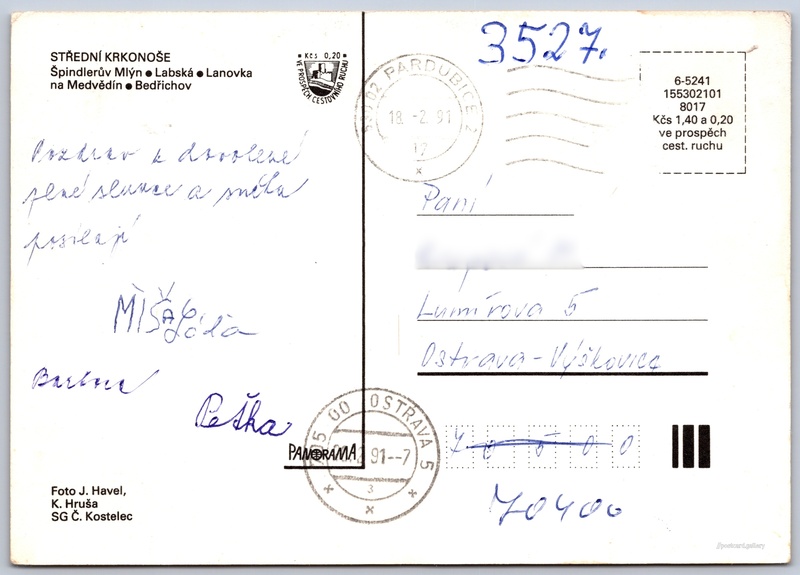 STŘEDNÍ KRKONOŠE
Špindlerův Mlýn ● Labská ● Lanovka
na Medvědín ● Bedřichov
Kčs 0,20
VE PROSPĚCH CESTOVNÍHO RUCHU
3527.
PARDUBICE 2
18.-2.91
12
6-5241
155302101
8017
Kčs 1,40 a 0,20
ve prospěch
cest. ruchu
Pozdrav z dovolené
plné slunce a sněhu
posílají
MÍŠA
Barbora
Peťka
Paní
Lumírova 5
Ostrava-Výškovice
705 00 OSTRAVA 5
2.91--7
3
PANORAMA
70400
Foto J. Havel,
K. Hruša
SG Č. Kostelec